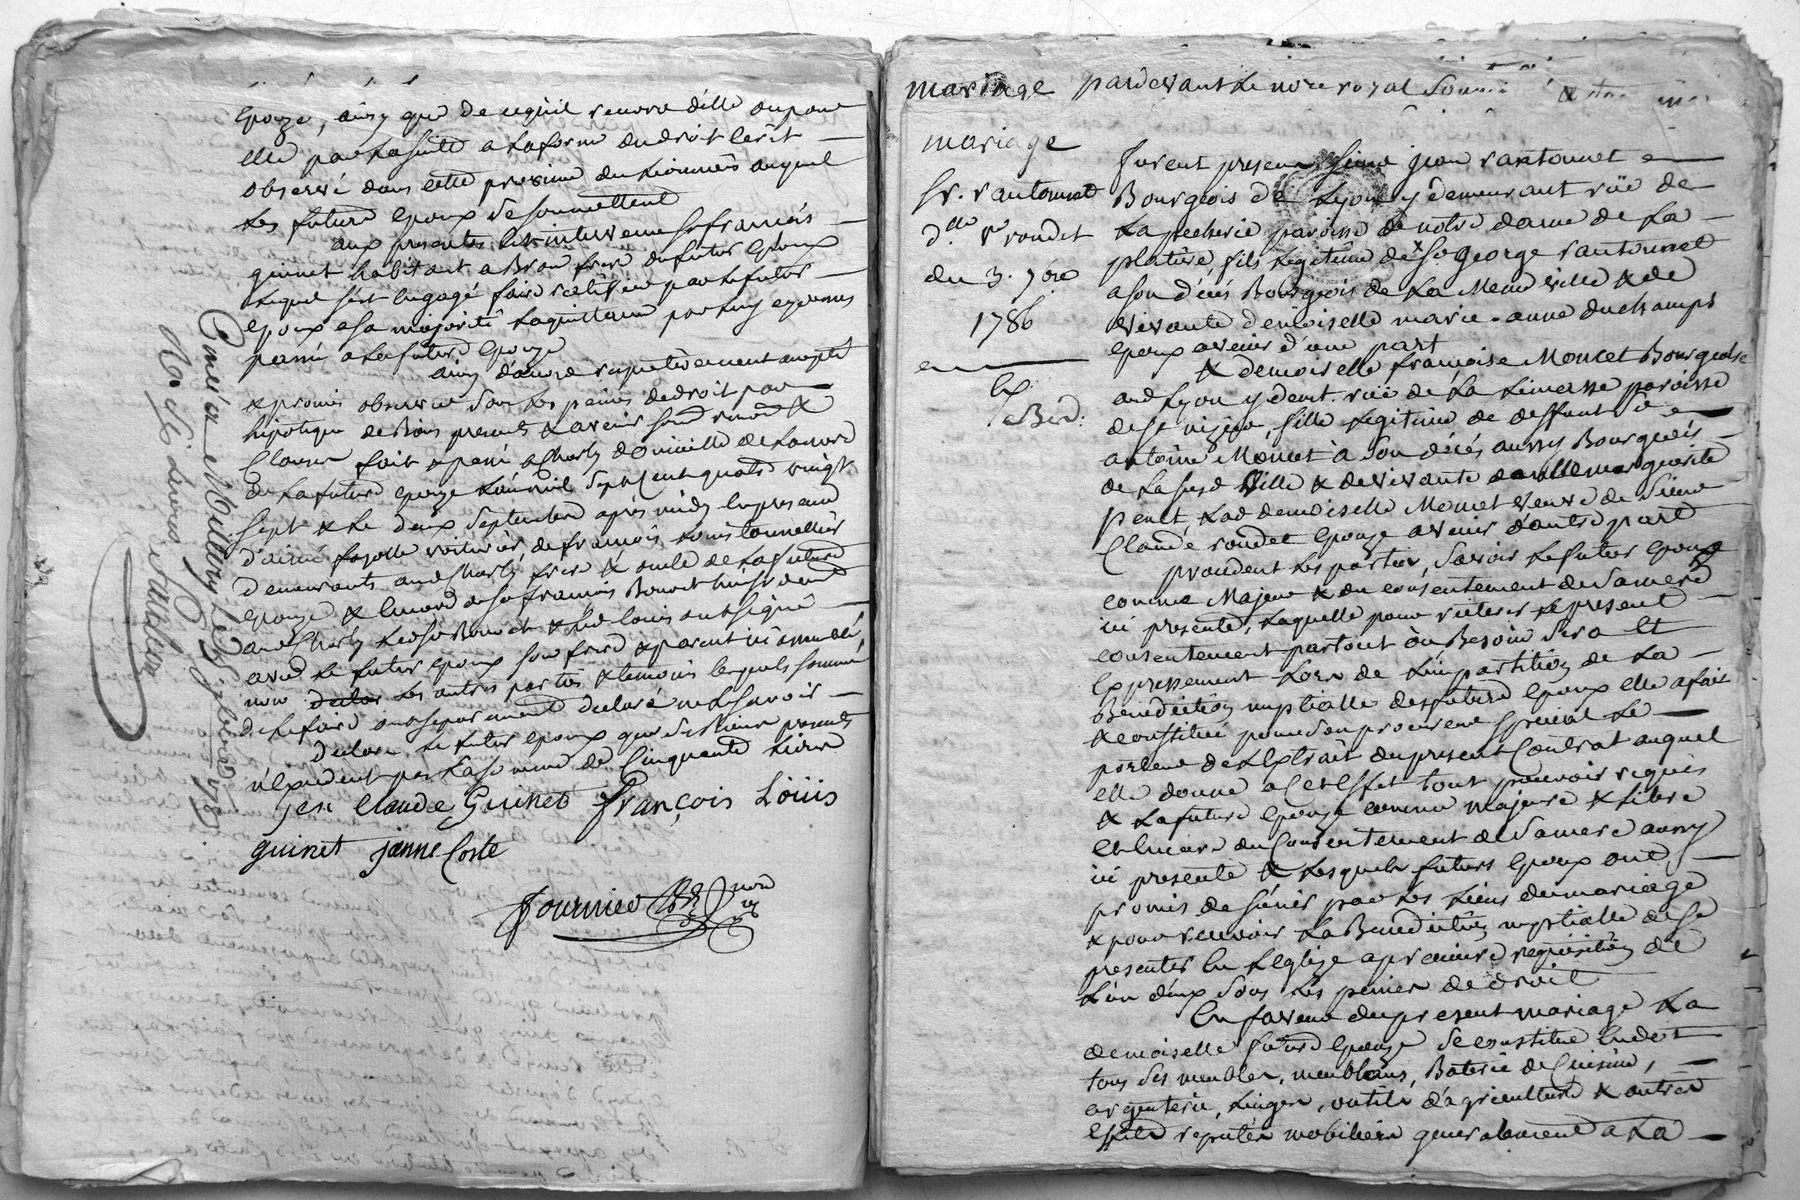 Epouze, ainsy que de ce qu'il recevra d'elle ou pour
elle par la suitte a la forme du droit Ecrit
observé dans cette province du Lionnois auquel
Les futurs Epoux se soumettent
aux presentes est intervenu sr françois
guinet habitant a Bron frere du futur Epoux
Lequel s'est Engagé faire ratiffier par le futur
Epoux a sa majorité
a la future Epouze
ainsy d'accord respectivement accepté
& promis observer sous les peines de droit par
hipoteque de Biens presents & avenir soum. renon. &
Clauses fait & passé a Charly domicille de la mere
de la future Epouze L'an mil sept Cent quatre vingt
sept & le deux septembre après midy En presence
d'aimé fayolle voiturier, de françois Louis tonnellier
demeurants aud Charly frere & oncle de la future
Epouze & Encore de sr françois
aud Charly & led Louis ont signé
avec le futur Epoux son frere & parent ici assemblés,
non les autres parties & temoins lesquels sommés
de le faire ont separement declaré ne sçavoir
Declare le futur Epoux que ses biens presents
n'excedent pas la somme de Cinquante Livres
jean claude Guinet françois Loüis
guinet janne Coste
fournier
Rx. six Livres
mariage pardevant Le nore royal
mariage
sr. vantournet
dlle ve rondet
du 3. 7bre
1786
Ex
furent presens sieur jean vantournet
Bourgeois de Lyon y demeurant rüe de
La pecherie paroisse de notre dame de La
platiere, fils Legitime de sr George vantournet
a son décés Bourgeois de La Meme ville & de
vivante demoiselle marie-anne duchamps
epoux avenir d'une part
& demoiselle françoise Moncet Bourgeoise
aud Lyon y demt. rüe de La Limasse paroisse
de st nizier, fille Legitime de deffunt sr
antoine Moncet à son décés aussy Bourgeois
de La susd ville & de vivante dlle marguerite
Lad demoiselle Moncet veuve de sieur
Claude rondet Epouze avenir d'autre part
procedent les parties, savoir Le futur Epoux
comme Majeur & du consentement de sa mere
ici presente, Laquelle pour reiterer Le present
consentement partout ou Besoin sera Et
Expressement Lors de L'impartition de La
Benediction nuptialle des futurs Epoux Elle a fait
& constitué pour son procureur special Le
porteur de L'Extrait du present Contrat auquel
elle donne a cet Effet tout pouvoir requis
& La future Epouze comme majeure & Libre
Et Encore du Consentement de sa mere aussy
ici presente & Lesquels futurs Epoux ont
promis de s'unir par les Liens du mariage
& pour recevoir La Benediction nuptialle de se
presenter En L'Eglize a premiere requisition de
L'un d'eux sous Les peines de droit
En faveur du present mariage La
demoiselle future Epouze se constitue En dot
tous ses meubles, meublans, Baterie de Cuisine,
argenterie, Linges, outils d'agriculture & autres
Effets reputés mobiliers generalement a La